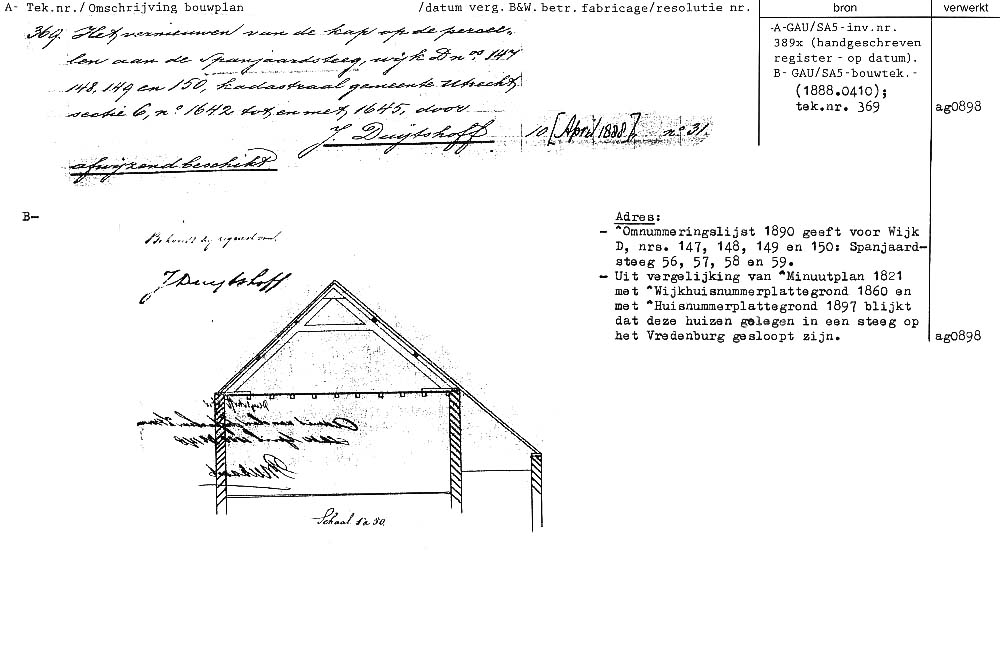 A- Tek.nr./Omschrijving bouwplan /datum verg. B&W. betr. fabricage/resolutie nr. bron verwerkt
369. Het vernieuwen van de kap op de percee-
len aan de Spanjaardsteeg, wijk D nos 147
148, 149 en 150, kadastraal gemeente Utrecht
sectie C, no 1642 tot en met 1645, door
J. Duijtshoff 10 [April 1888], no 31.
afwijzend beschikt
-A-GAU/SA5-inv.nr.
389x (handgeschreven
register - op datum).
B- GAU/SA5-bouwtek.-
(1888.0410);
tek.nr. 369 ag0898
B-
J Duijtshoff
Schaal 1 à 50.
Adres:
- ^Omnummeringslijst 1890 geeft voor Wijk
D, nrs. 147, 148, 149 en 150: Spanjaard-
steeg 56, 57, 58 en 59.
- Uit vergelijking van ^Minuutplan 1821
met ^Wijkhuisnummerplattegrond 1860 en
met ^Huisnummerplattegrond 1897 blijkt
dat deze huizen gelegen in een steeg op
het Vredenburg gesloopt zijn. ag0898